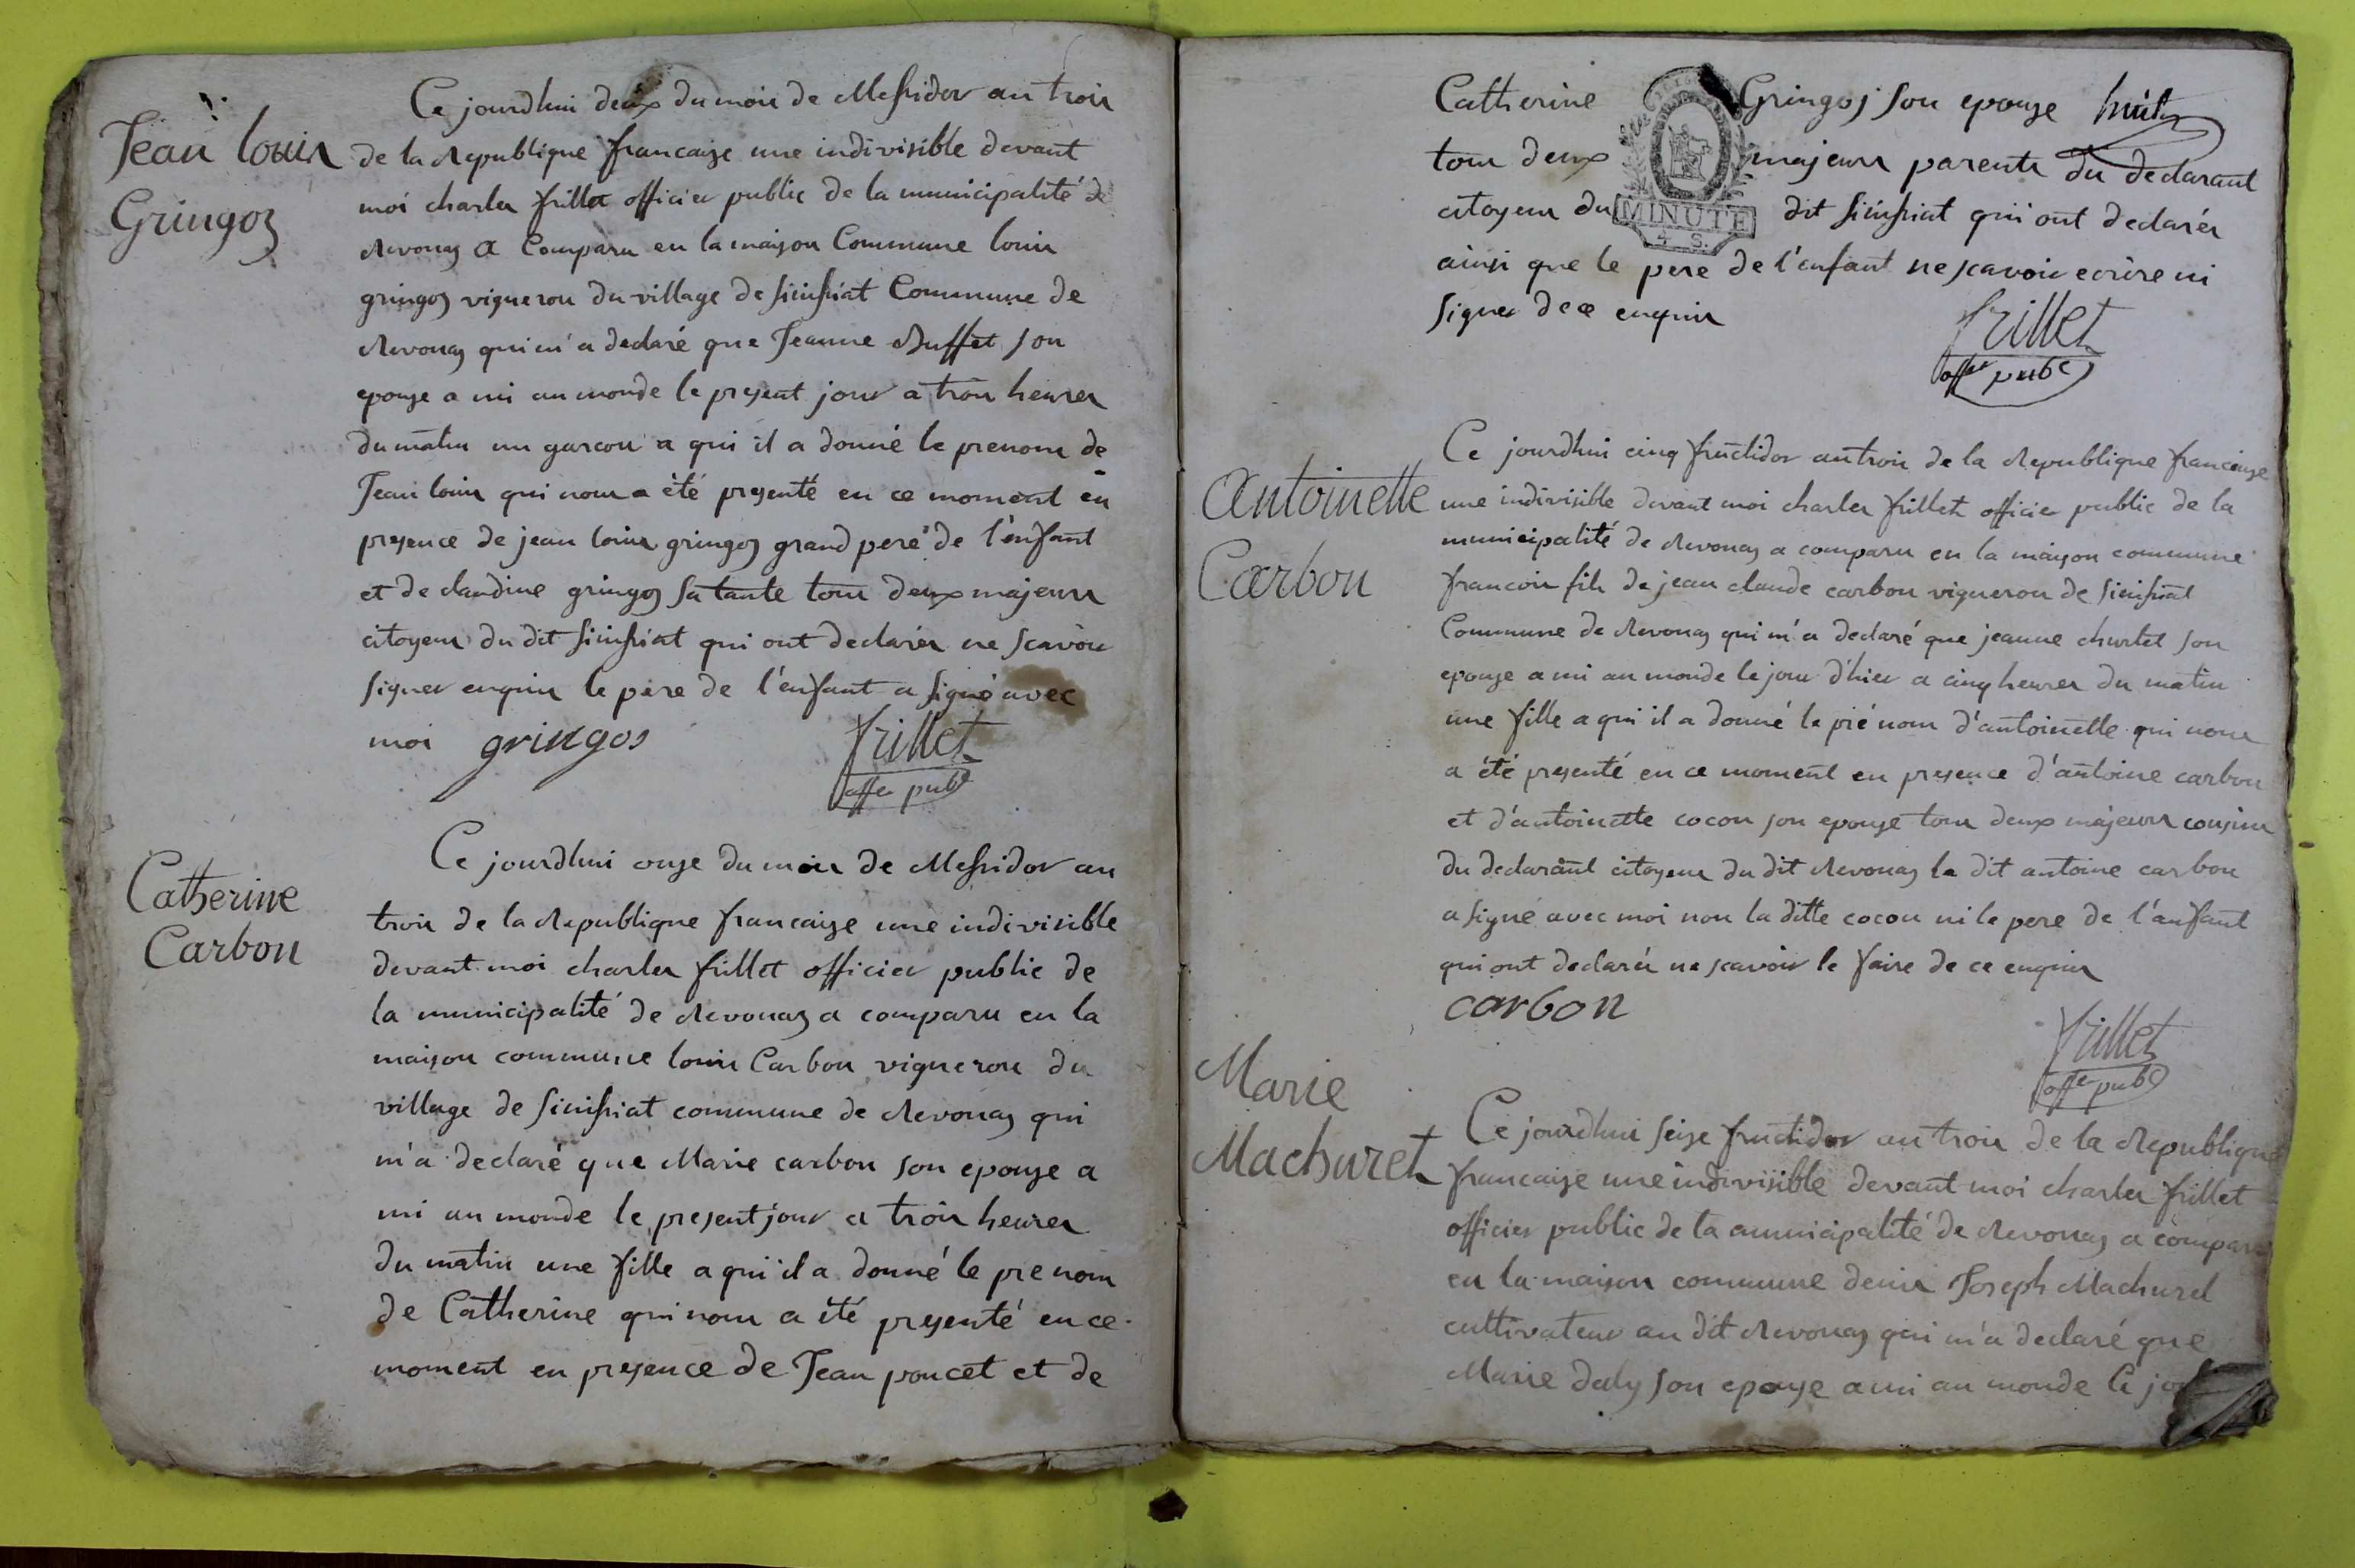 Jean louis
Gringoz
Ce jourdhui deux du mois de Messidor an trois
de la Republique francaize une indivisible devant
moi charles frillet officier public de la municipalité de
Revonaz a Comparu en la maison Commune louis
gringoz vigneron du village de Sinissiat Commune de
Revonaz qui m'a declaré que Jeanne Buffet son
epouze a mi au monde le present jour a trois heures
du matin un garcon a qui il a donné le prenom de
Jean louis qui nous a été presenté en ce moment en
presence de jean louis gringoz grand pere de l'enfant
et de claudine gringoz sa tante tous deux majeurs
citoyens du dit Sinissiat qui ont declarés ne scavoir
signer enquis le père de l'enfant a signé avec
moi gringos frillet
offer pub
Catherine
Carbon
Ce jourdhui onze du mois de Messidor an
trois de la Republique francaize une indivisible
devant moi charles frillet officier public de
la municipalité de Revonaz a comparu en la
maison commune louis Carbon vigneron du
village de Sinissiat commune de Revonaz qui
m'a declaré que Marie carbon son epouze a
mi au monde le present jour a trois heures
du matin une fille a qui il a donné le prenom
de Catherine qui nous a été presenté en ce
moment en presence de Jean poncet et de
Catherine Gringoz son epouze huit
tous deux majeurs parents du declarant
citoyens du dit Sinissiat qui ont declarés
MINUTE
4 S.
ainsi que le pere de l'enfant ne scavoir ecrire ni
signer de ce enquis
frillet
offer pubc
Antoinette
Carbon
Ce jourdhui cinq fructidor an trois de la Republique francaize
une indivisible devant moi charles frillet officier public de la
municipalité de Revonaz a comparu en la maison commune
francois fils de jean claude carbon vigneron de Sinissiat
Commune de Revonaz qui m'a declaré que jeanne churlet son
epouze a mi au monde le jour d'hier a cinq heures du matin
une fille a qui il a donné le prénom d'antoinette qui nous
a été presenté en ce moment en presence d'antoine carbon
et d'antoinette cocon son epouze tous deux majeurs cousins
du declarant citoyens du dit Revonaz le dit antoine carbon
a signé avec moi non la ditte cocon ni le pere de l'anfant
qui ont declarés ne scavoir le faire de ce enquis
carbon
frillet
offer pubc
Marie
Machuret
Ce jourdhui seize fructidor an trois de la Republique
francaize une indivisible devant moi charles frillet
officier public de la municipalité de Revonaz a comparu
en la maison commune denis Joseph Machuret
cultivateur au dit Revonaz qui m'a declaré que
Marie daly son epouze a mi au monde le